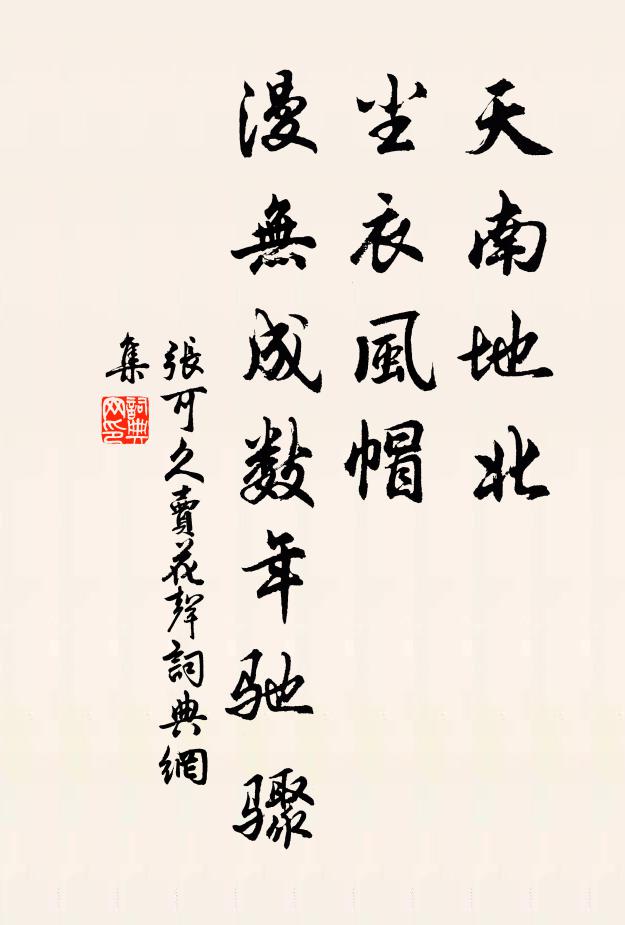 天南地北
尘衣風帽
漫無成数年驰骤
張可久賣花聲詞典網
集
詞典网印